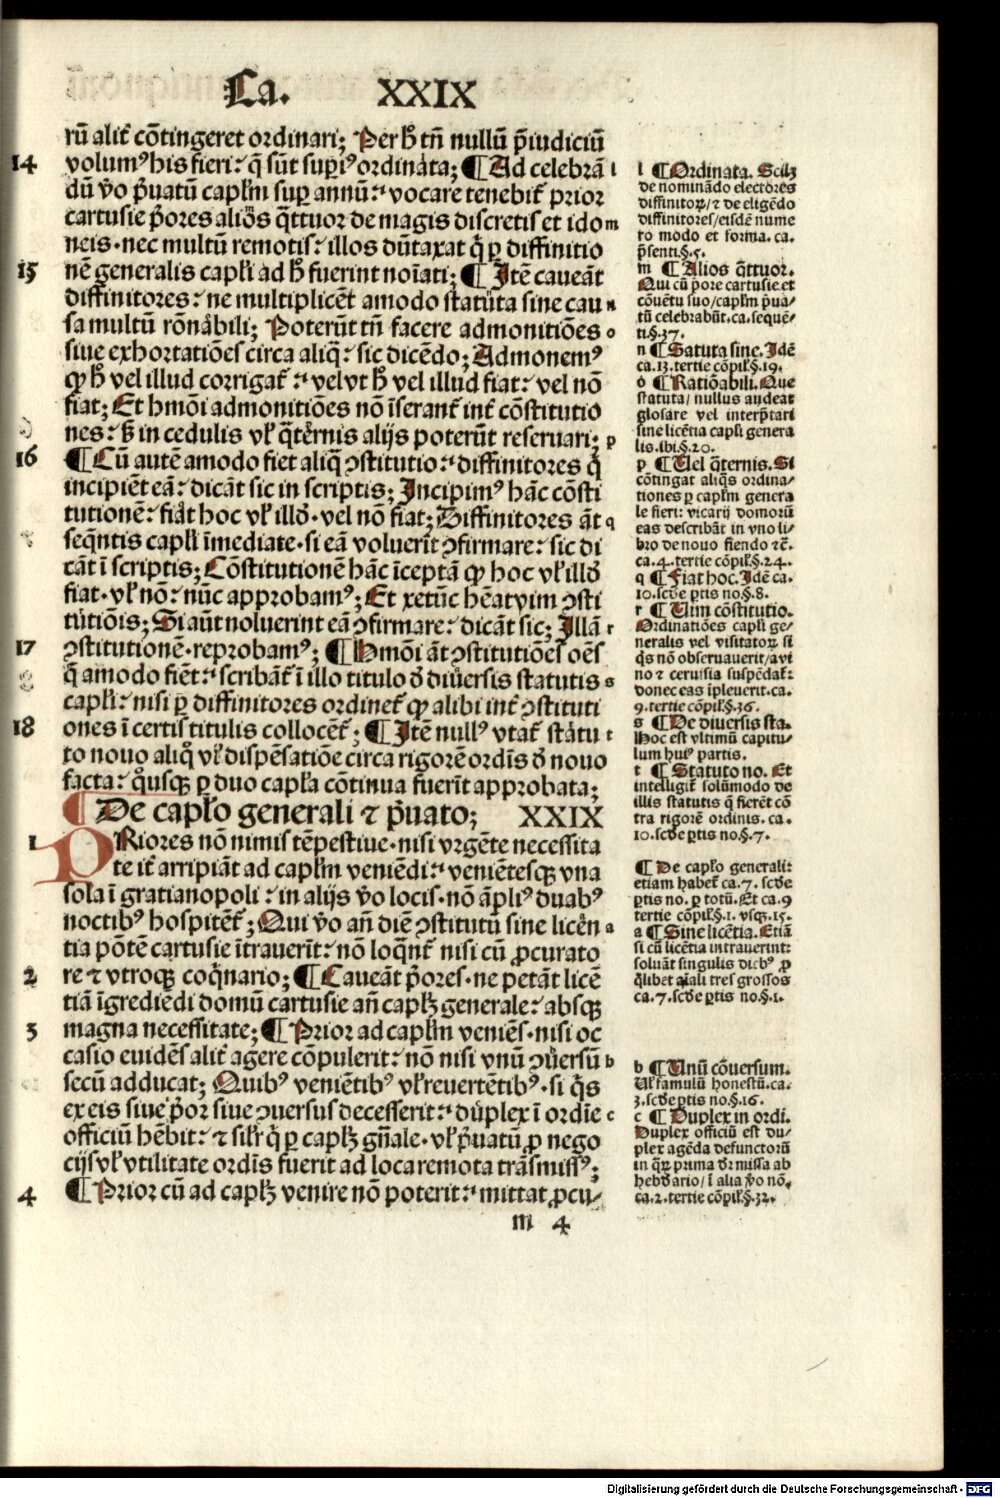 Ca. XXIX
rū alit̄ cōtingeret ordinari; Per h̄ tn̄ nullū p̄iudiciū
14 volumꝰ his fieri: q̄ sūt sup̲iꝰ ordinata; ¶ Ad celebrā l
dū v̊o p̲uatū capl̄m sup̲ annū: vocare tenebit̄ prior
cartusie p̲ores aliōs q̄ttuor de magis discretis et ido m
neis. nec multū remotis: illos dūtaxat q̄ p̲ diffinitio
15 nē generalis capl̄i ad h̄ fuerint noīati; ¶ Itē caveāt
diffinitores: ne multiplicēt amodo statūta sine cau n
sa multū rōnabili; Poterūt tn̄ facere admonitiōes o
siue exhortatiōes circa aliq̄: sic dicēdo; Admonemꝰ
ꝙ h̄ vel illud corrigat̄: velut h̄ vel illud fiat: vel nō
fiat; Et hmōi admonitiōes nō īserant̄ int̄ cōstitutio
nes: sꝫ in cedulis vl̄ q̄ternis alijs poterūt reseruari; p
16 ¶ Cū autē amodo fiet aliq̄ ↄstitutio: diffinitores q̄
incipiēt eā: dicāt sic in scriptis; Incipimꝰ hāc cōsti
tutionē: fiāt hoc vl̄ illđ. vel nō fiat; Diffinitores āt q
seq̄ntis capl̄i īmediate. si eā voluerīt ↄfirmare: sic di
cāt ī scriptis; Cōstitutionē hāc īceptā ꝙ hoc vl̄ illđ
fiat. vl̄ nō: nūc approbamꝰ; Et xetūc hēat vim ↄsti
tutiōis; Si aūt noluerint eā ↄfirmare: dicāt sic; Illā r
17 ↄstitutionē. reprobamꝰ; ¶ Hmōi āt ↄstitutiōes oēs
q̄ amodo fiēt: scribāt̄ ī illo titulo đ diuersis statutis s
capl̄i: nisi p̲ diffinitores ordinet̄ ꝙ alibi int̄ ↄstituti
18 ones ī certis titulis collocēt̄; ¶ Itē nullꝰ vtat̄ statu t
to nouo aliq̄ vl̄ dispēsatiōe circa rigorē ordīs đ nouo
facta: q̊usqꝫ p̲ duo capl̄a cōtinua fuerīt approbata;
¶ De capl̄o generali ⁊ p̲uato; XXIX
1 PRiores nō nimis tēpestiue. nisi vrgēte necessita
te it̄ arripiāt ad capl̄m veniēdi: veniētesqꝫ vna
sola ī gratianopoli: in alijs v̊o locis. nō āpliꝰ duabꝰ
noctibꝰ hospitēt̄; Qui v̊o an̄ diē ↄstitutū sine licēn a
tia pōtē cartusie ītrauerīt: nō loq̄nt̄ nisi cū ꝓcurato
2 re ⁊ vtroqꝫ coq̄nario; ¶ Caueāt p̲ores. ne petāt licē
tiā īgrediēdi domū cartusie an̄ caplꝫ generale: absqꝫ
3 magna necessitate; ¶ Prior ad capl̄m veniēs. nisi oc
casio euidēs alit̄ agere cōpulerit: nō nisi vnū ↄuersū b
secū adducat; Quibꝰ veniētibꝰ vl̄ reuertētibꝰ. si q̄s
ex eis siue p̲or siue ↄuersus decesserit: duplex ī ordīe c
officiū hēbit: ⁊ sil̄r q̄ p̲ caplꝫ gn̄ale. vl̄ p̲uatū ꝓ nego
cijs vl̄ vtilitate ordīs fuerit ad loca remota trāsmissꝰ;
4 ¶ Prior cū ad caplꝫ venire nō poterit: mittat ꝓcu-
m 4
l ¶ Ordinata. Scilꝫ
de nominādo electores
diffinitoꝝ/ ⁊ de eligēdo
diffinitores/ eisdē nume
ro modo et forma. ca.
p̄senti. §. 5.
m ¶ Alios q̄ttuor.
Qui cū p̲ore cartusie et
cōuētu suo/ capl̄m p̲ua-
tū celebrabūt. ca. sequē-
ti. §. 37.
n ¶ Satuta sine. Idē
ca. 13. tertie cōpil̄. §. 19.
o ¶ Ratiōabili. Que
statuta/ nullus audeat
glosare vel interp̄tari
sine licētia capl̄i genera
lis. ibi. §. 20.
p ¶ Uel q̄ternis. Si
cōtingat aliq̄s ordina-
tiones p̲ capl̄m genera
le fieri: vicarij domorū
eas describāt in vno li-
bro de nouo fiendo ⁊c̄.
ca. 4. tertie cōpil̄. §. 24.
q ¶ Fiat hoc. Idē ca.
10. scđe p̲tis no. §. 8.
r ¶ Uim cōstitutio.
Ordinatiōes capl̄i ge-
neralis vel visitatoꝝ si
q̄s nō obseruauerit/ a vi
no ⁊ ceruisia suspēdat̄:
donec eas īpleuerit. ca.
9. tertie cōpil̄. §. 36.
s ¶ De diuersis sta.
Hoc est vltimū capitu-
lum huiꝰ partis.
t ¶ Statuto no. Et
intelligit̄ solūmodo de
illis statutis q̄ fierēt cō
tra rigorē ordinis. ca.
10. scđe p̲tis no. §. 7.
¶ De capl̄o generali:
etiam habet̄ ca. 7. scđe
p̲tis no. p̲ totū. Et ca. 9
tertie cōpil̄. §. 1. vsqꝫ. 15.
a ¶ Sine licētia. Etiā
si cū licētia intrauerint:
soluāt singulis diebꝰ ꝓ
q̄libet aīali tres grossos
ca. 7. scđe p̲tis no. §. 1.
b ¶ Unū cōuersum.
Ul̄ famulū honestū. ca.
3. scđe p̲tis no. §. 16.
c ¶ Duplex in ordi.
Duplex officiū est du-
plex agēda defunctorū
in q̄ꝝ prima đr missa ab
hebđario/ ī alia v̊o nō.
ca. 2. tertie cōpil̄. §. 32.
Digitalisierung gefördert durch die Deutsche Forschungsgemeinschaft - DFG